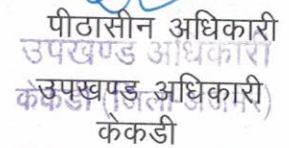 पीठासीन अधिकारी
उपखण्ड अधिकारी
उपखण्ड अधिकारी
केकडी (जिला-अजमेर)
केकडी